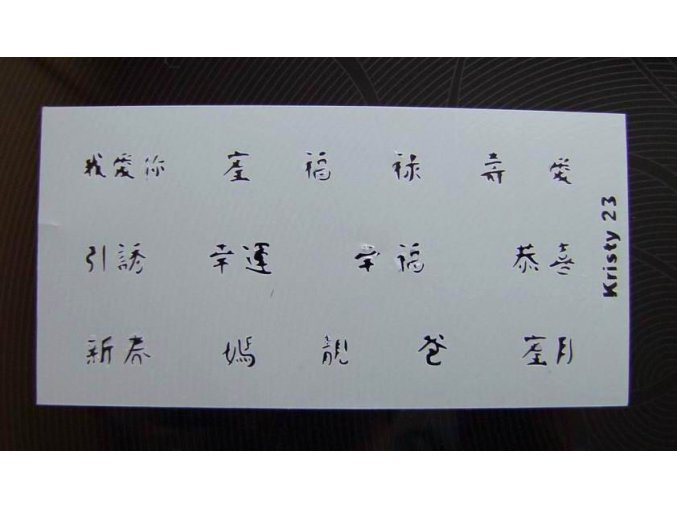 我愛你 產 福 祿 壽 愛
引誘 幸運 幸福 恭喜
新春 媽 靚 爸 產月
Kristy 23